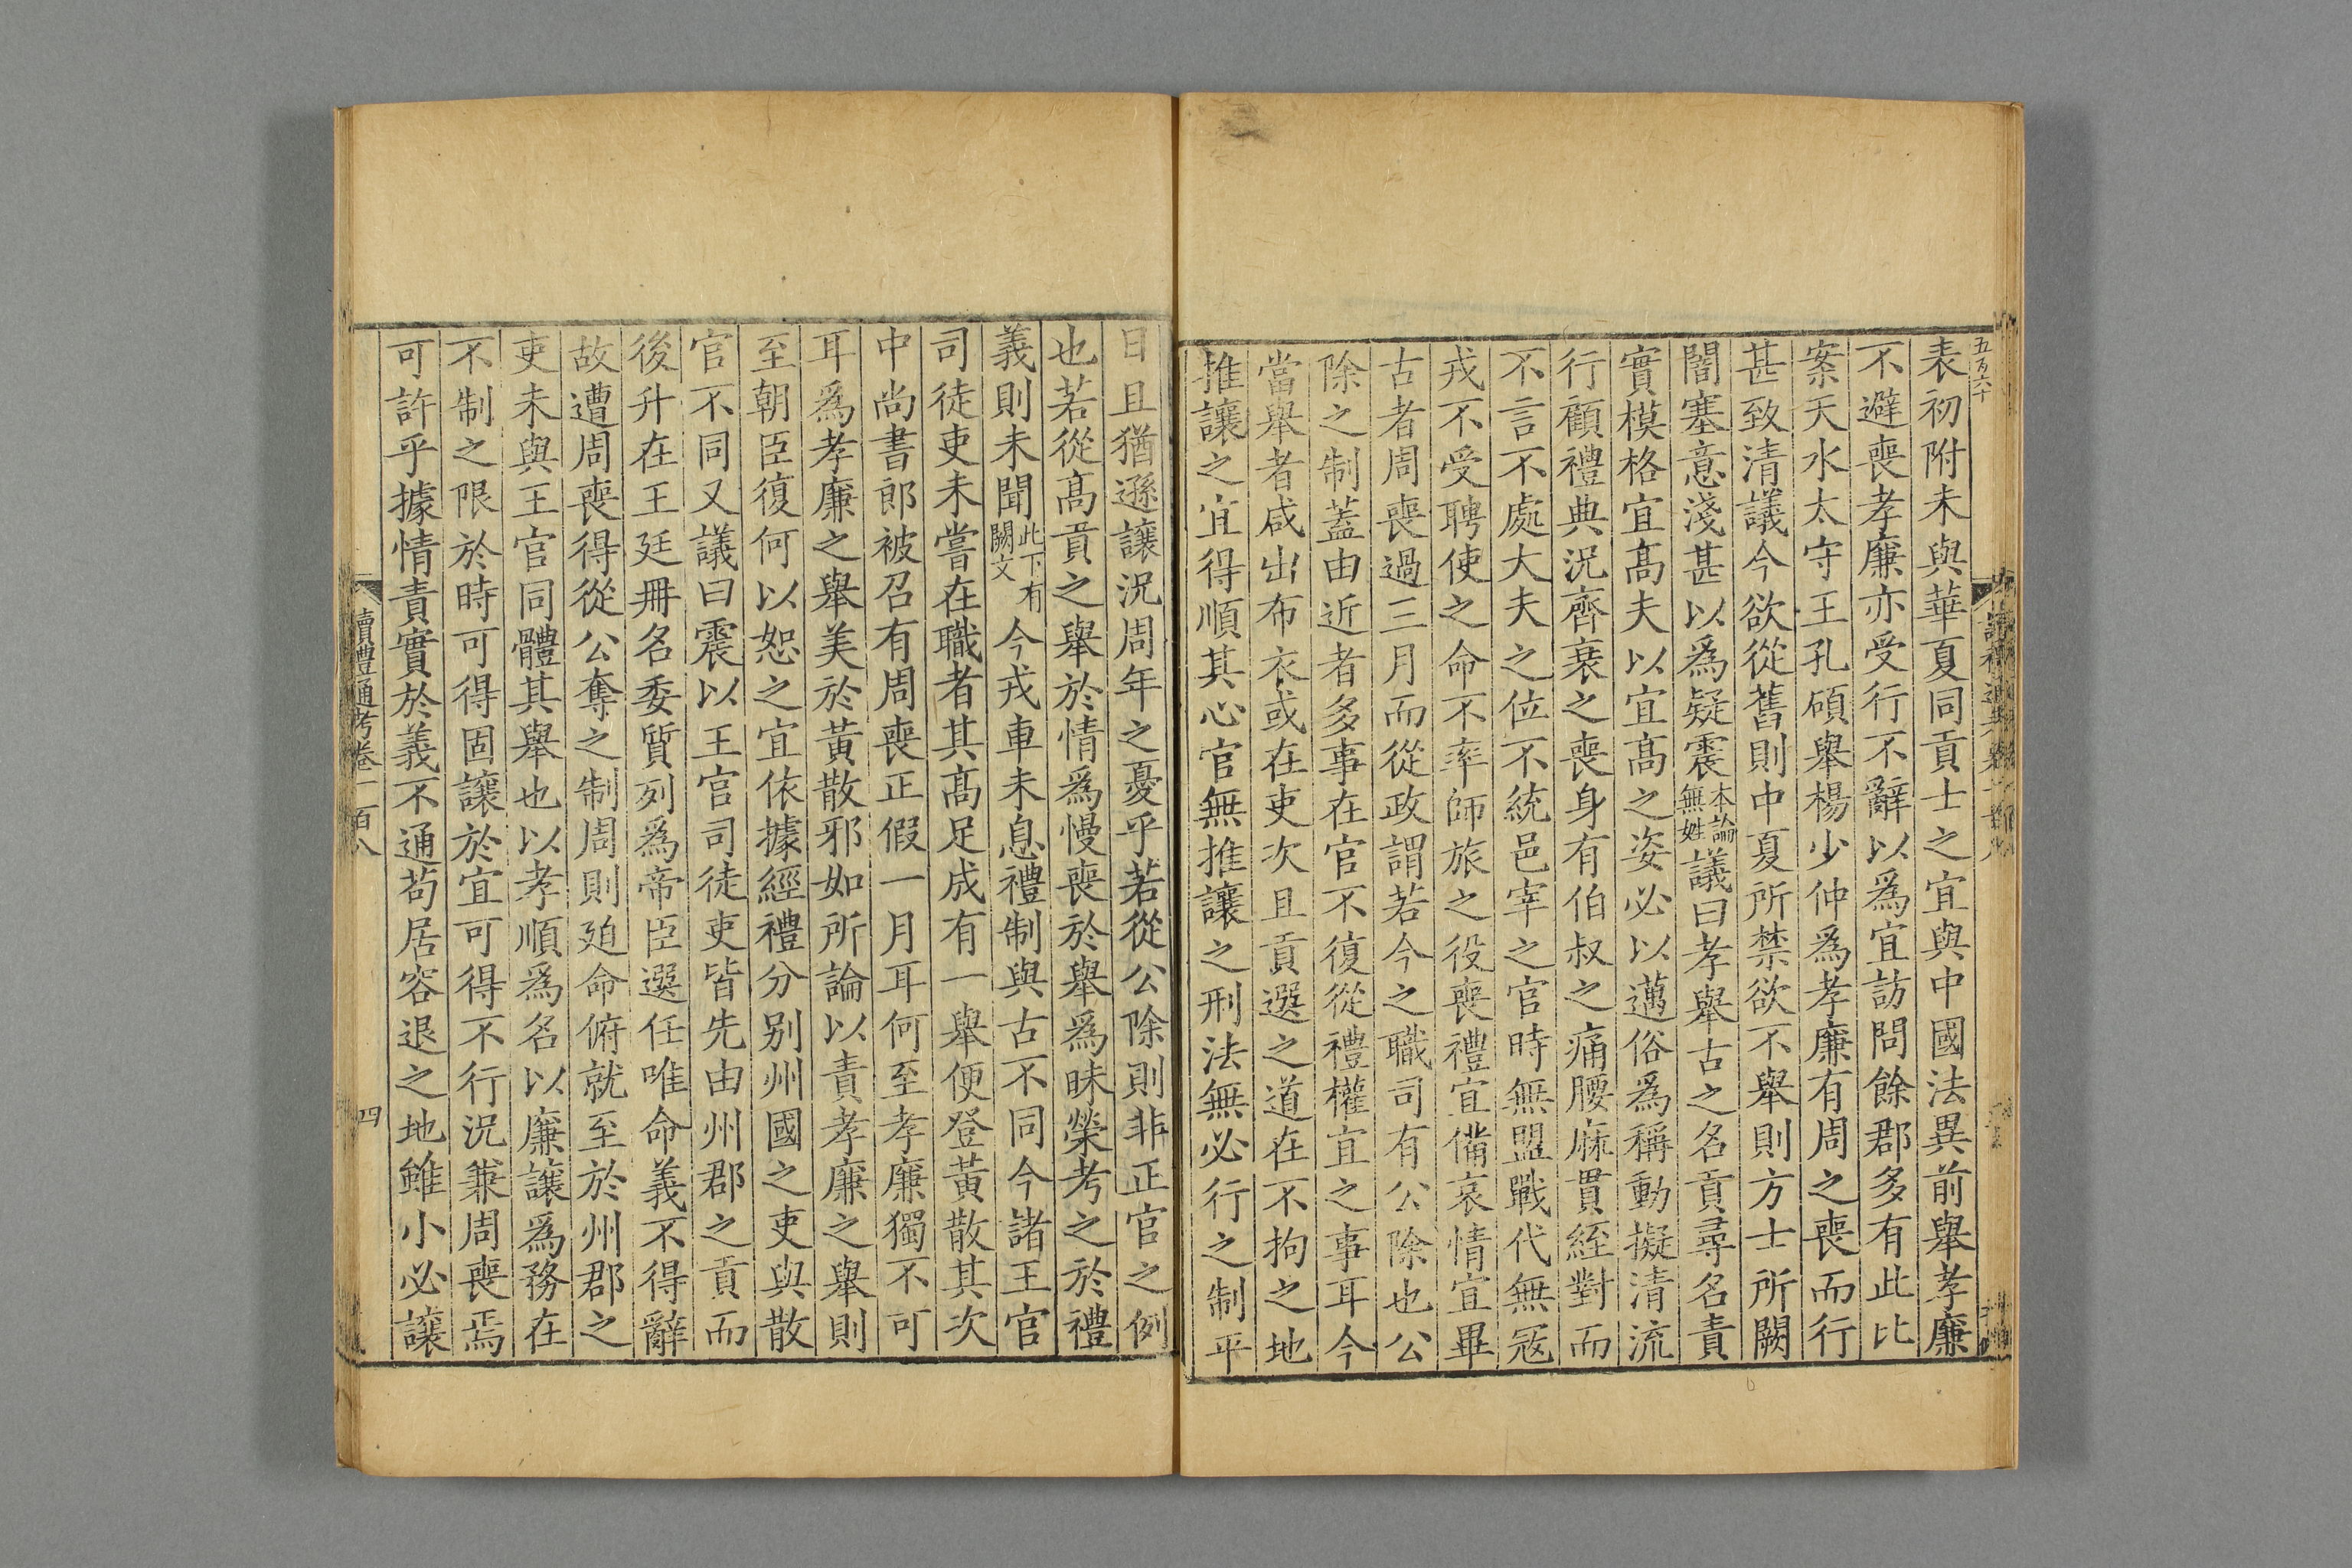 五百六十
表初附未與華夏同貢士之宜與中國法異前舉孝廉
不避喪孝廉亦受行不辭以爲宜訪問餘郡多有此比
案天水太守王孔碩舉楊少仲爲孝廉有周之喪而行
甚致清議今欲從舊則中夏所禁欲不舉則方士所闕
闇塞意淺甚以爲疑震本論無姓議曰孝舉古之名貢尋名責
實模格宜高夫以宜高之姿必以邁俗爲稱動擬清流
行顧禮典況齊衰之喪身有伯叔之痛腰麻貫絰對而
不言不處大夫之位不統邑宰之官時無盟戰代無冦
戎不受聘使之命不率師旅之役喪禮宜備哀情宜畢
古者周喪過三月而從政謂若今之職司有公除也公
除之制蓋由近者多事在官不復從禮權宜之事耳今
當舉者咸出布衣或在吏次且貢選之道在不拘之地
推讓之宜得順其心官無推讓之刑法無必行之制平
日且猶遜讓況周年之憂乎若從公除則非正官之例
也若從髙貢之舉於情爲慢喪於舉爲昧榮考之於禮
義則未聞此下有闕文今戎車未息禮制與古不同今諸王官
司徒吏未嘗在職者其髙足成有一舉便登黃散其次
中尚書郎被召有周喪正假一月耳何至孝廉獨不可
耳爲孝廉之舉美於黃散邪如所論以責孝廉之舉則
至朝臣復何以恕之宜依據經禮分别州國之吏與散
官不同又議曰震以王官司徒吏皆先由州郡之貢而
後升在王廷冊名委質列爲帝臣選任唯命義不得辭
故遭周喪得從公奪之制周則廹命俯就至於州郡之
吏未與王官同體其舉也以孝順爲名以廉讓爲務在
不制之限於時可得固讓於宜可得不行況兼周喪焉
可許乎據情責實於義不通苟居容退之地雖小必讓
讀禮通考卷一百八
四